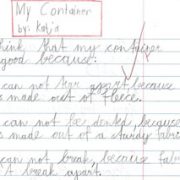 My Container
by: Katja
think that my container
good because:
can not tear apart, because
s made out of fleece.
can not be dented, because
s made out of a sturdy
can not break, because fab
t break apart.